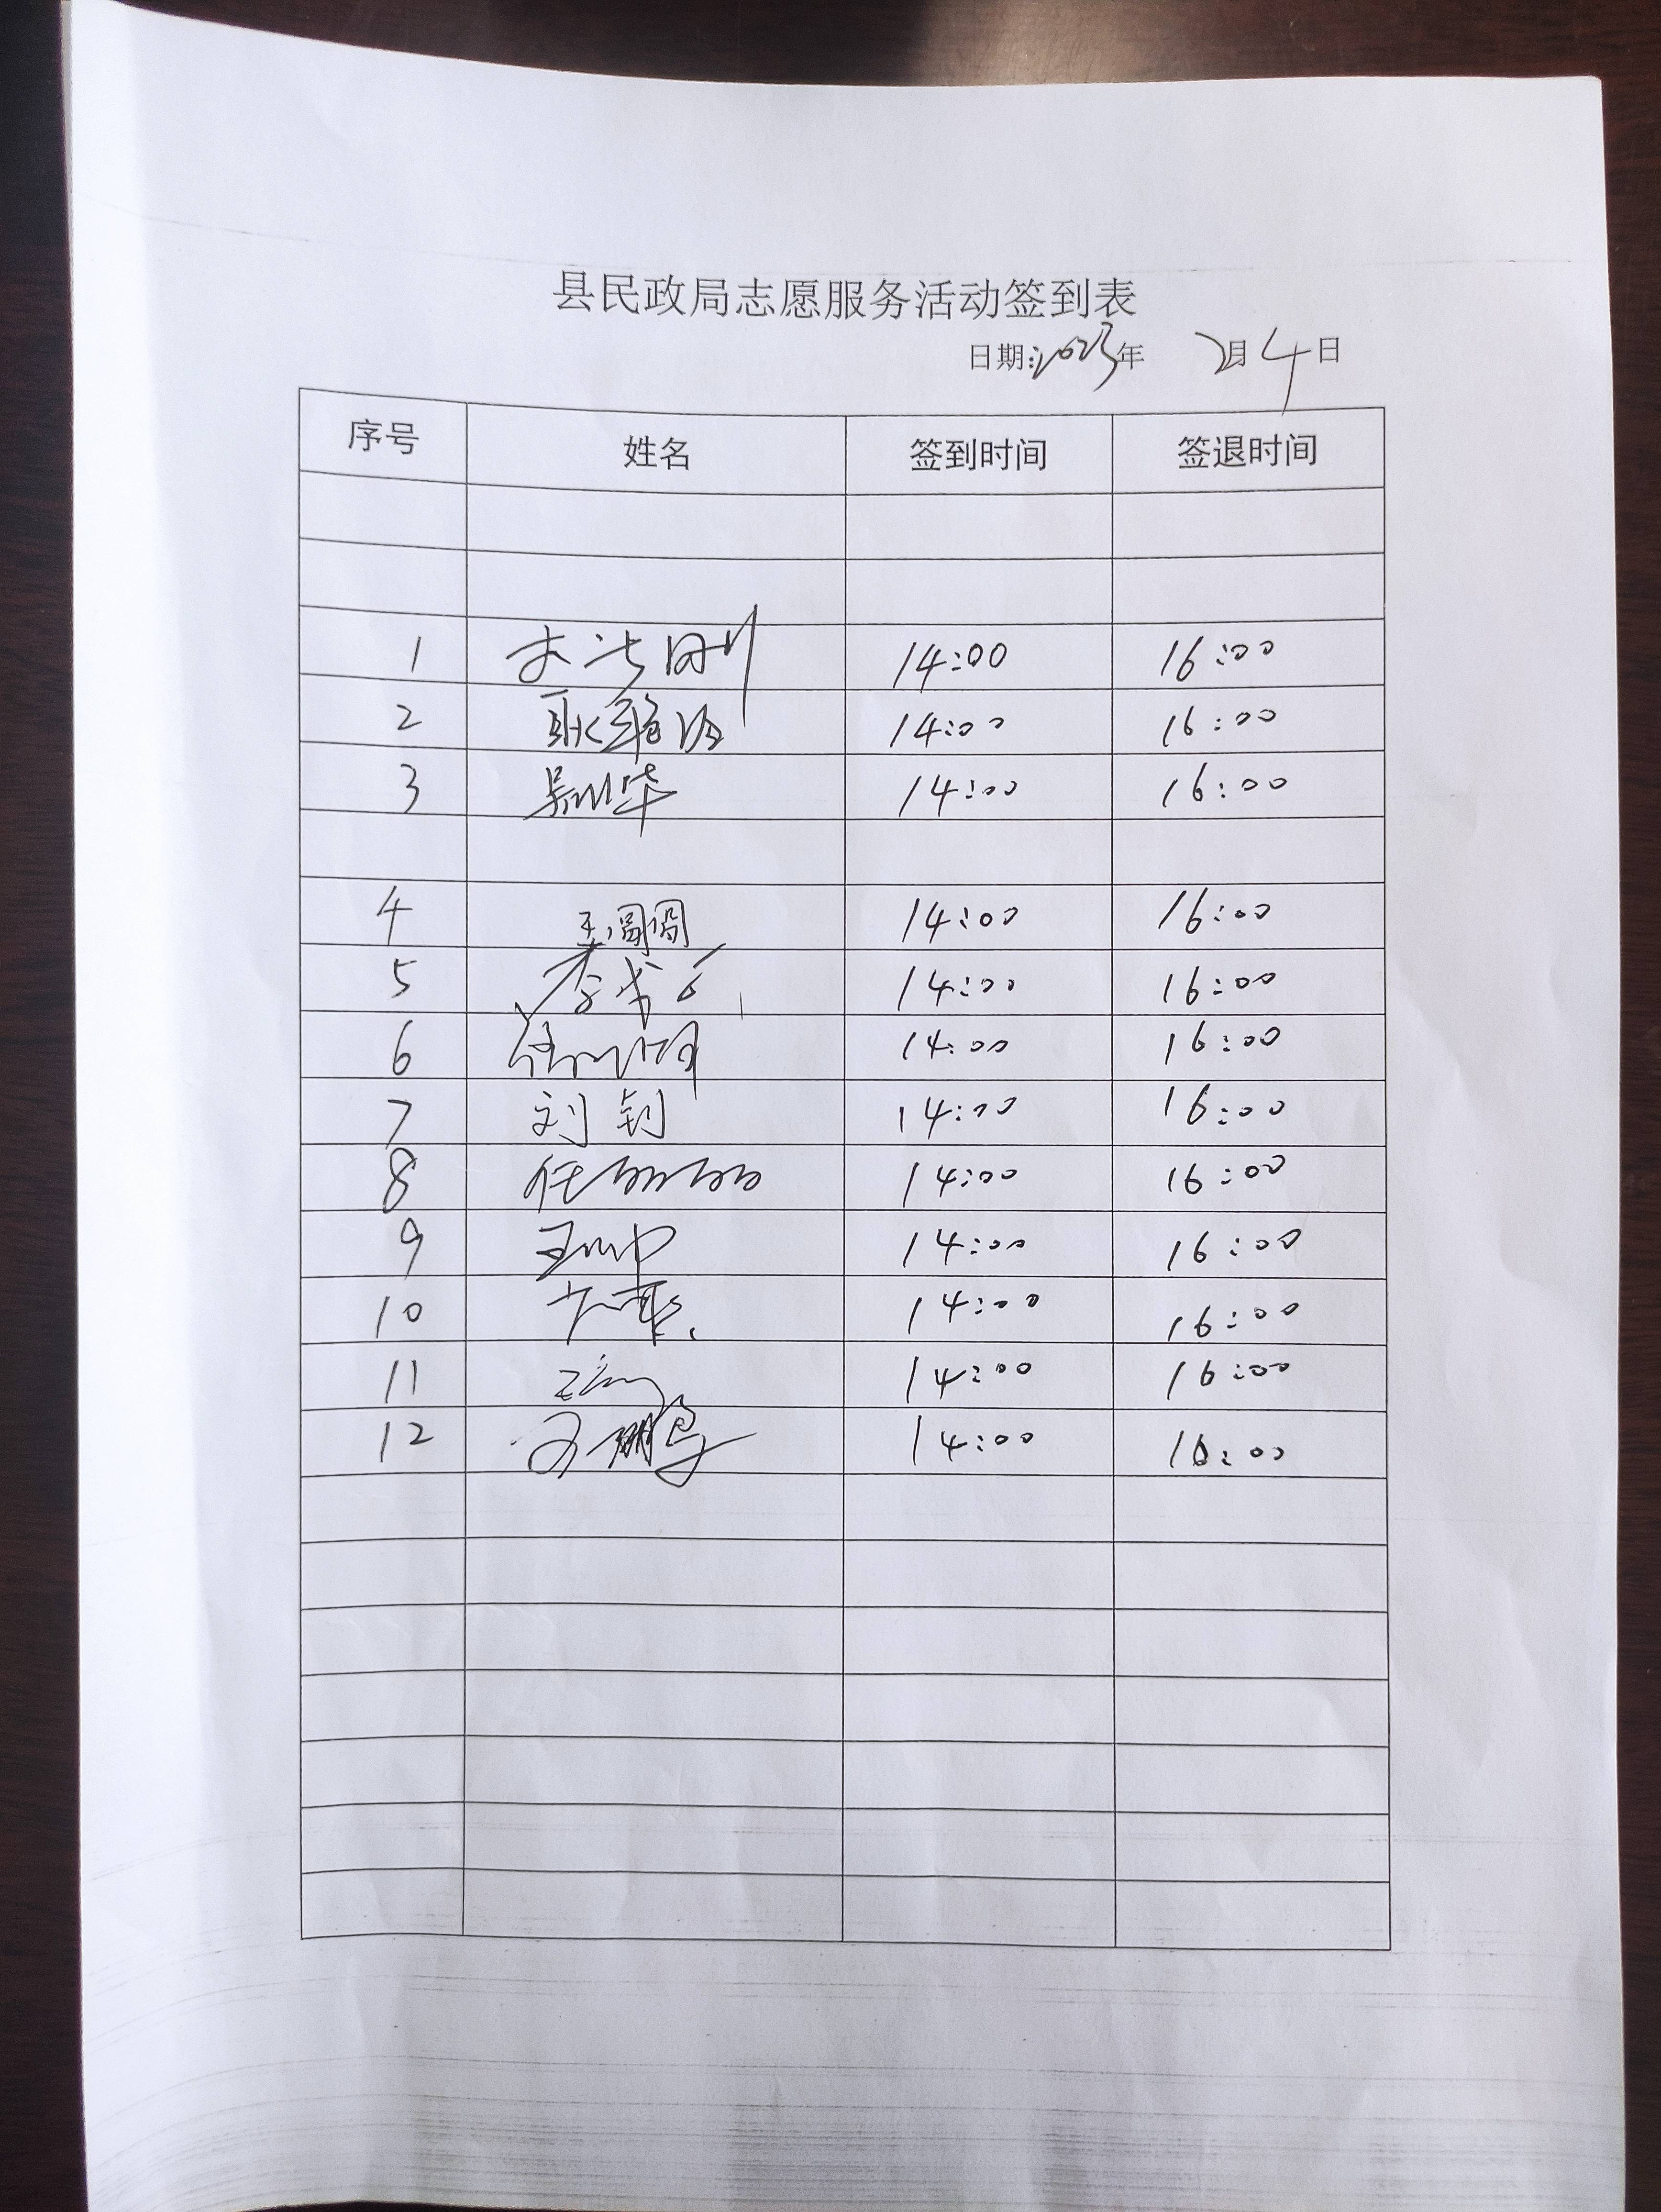 县民政局志愿服务活动签到表
日期:2023年 2月4日
序号 姓名 签到时间 签退时间
1 14:00 16:00
2 14:00 16:00
3 14:00 16:00
4 王圆圆 14:00 16:00
5 14:00 16:00
6 14:00 16:00
7 刘钊 14:00 16:00
8 任丽丽 14:00 16:00
9 14:00 16:00
10 14:00 16:00
11 14:00 16:00
12 14:00 16:00